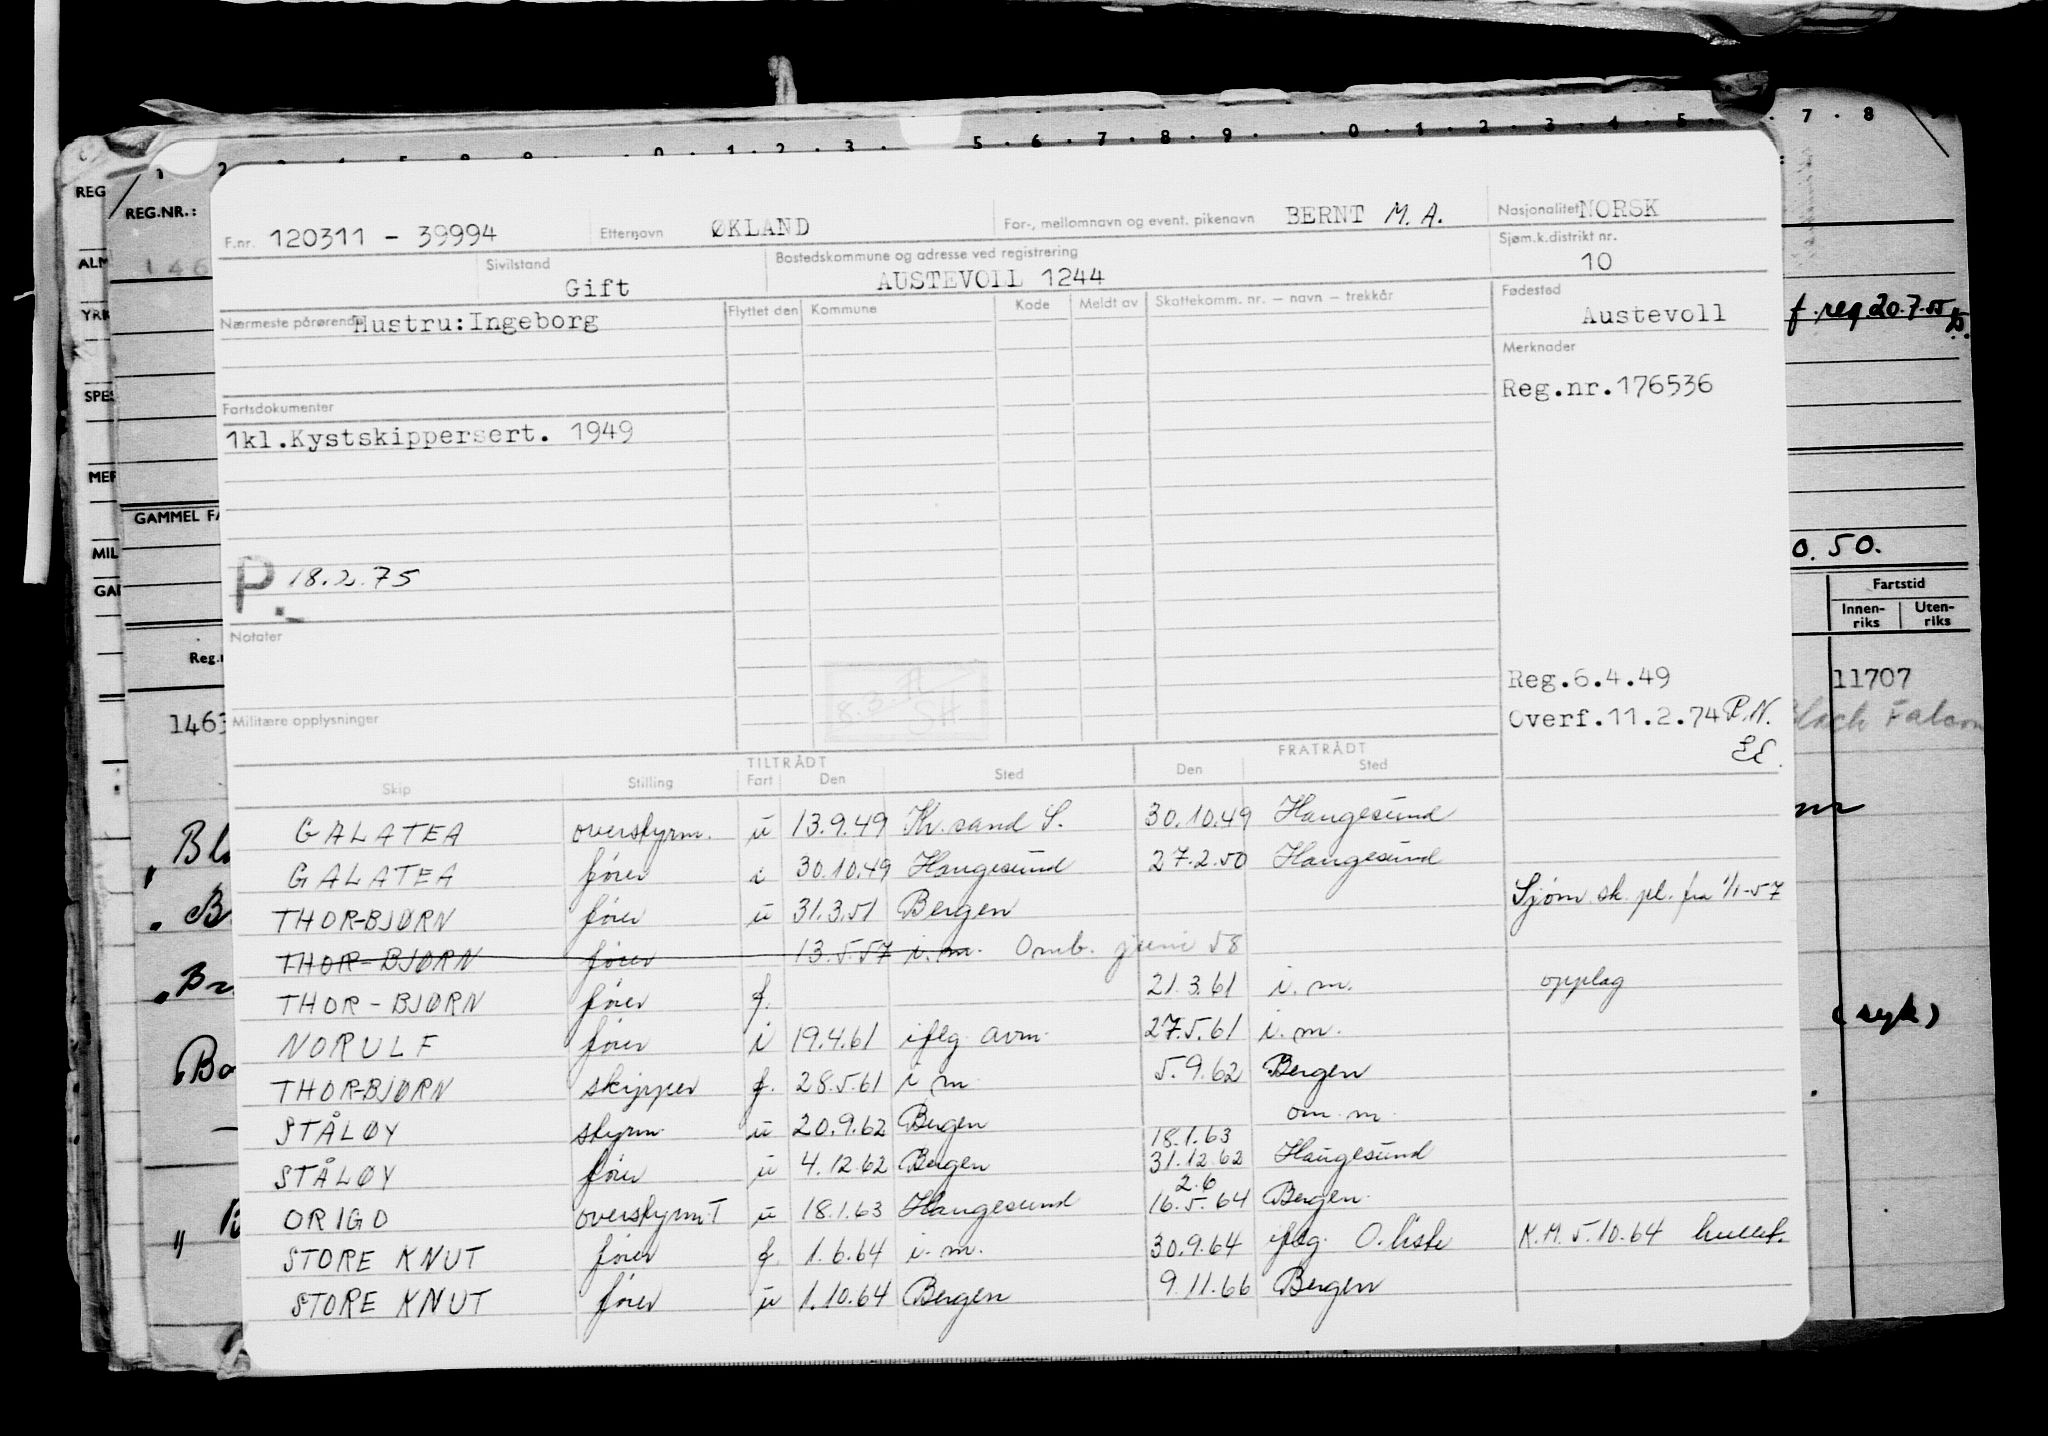 1 2 5 6 7 8 9 0 1 2 3 4 5 7 8
REG
REG.NR.:
ALM
YRK
SPES
MER
GAMMEL FA
MIL
GAL
Reg.n
1463
F.nr. 120311 - 39994 Etternavn ØKLAND For-, mellomnavn og event. pikenavn BERNT M. A. Nasjonalitet NORSK
Sivilstand Gift Bostedskommune og adresse ved registrering AUSTEVOLL 1244 Sjøm.k.distrikt nr. 10
Nærmeste pårørende Hustru: Ingeborg Flyttet den Kommune Kode Meldt av Skattekomm. nr. – navn – trekkår Fødested Austevoll
Merknader
Reg.nr.176536
Fartsdokumenter
1kl.Kystskippersert. 1949
P. 18.2.75
Notater
Militære opplysninger
Reg.6.4.49
Overf.11.2.74 P.N.
TILTRÅDT FRATRÅDT
Skip Stilling Fart Den Sted Den Sted
GALATEA overstyrm. u 13.9.49 Kr. sand S. 30.10.49 Haugesund
GALATEA fører i 30.10.49 Haugesund 27.2.50 Haugesund
THOR-BJØRN fører u 31.3.51 Bergen Sjøm. sk. pl. fra 1/1-57
THOR-BJØRN fører 13.5.57 i.m. Omb. juni 58
THOR-BJØRN fører f. 21.3.61 i.m. opplag
NORULF fører i 19.4.61 iflg. avm. 27.5.61 i.m.
THOR-BJØRN skipper f. 28.5.61 i m. 5.9.62 Bergen
STÅLØY styrm. u 20.9.62 Bergen om. m.
STÅLØY fører u 4.12.62 Bergen 18.1.63 31.12.62 Haugesund
ORIGO overstyrm. T u 18.1.63 Haugesund 2.6 16.5.64 Bergen
STORE KNUT fører f. 1.6.64 i.m. 30.9.64 iflg. O.liste K.M. 5.10.64
STORE KNUT fører u 1.10.64 Bergen 9.11.66 Bergen
f. reg 20.7.55
0.50.
Fartstid
Innen-riks Uten-riks
11707
Black Falcon
(syk)